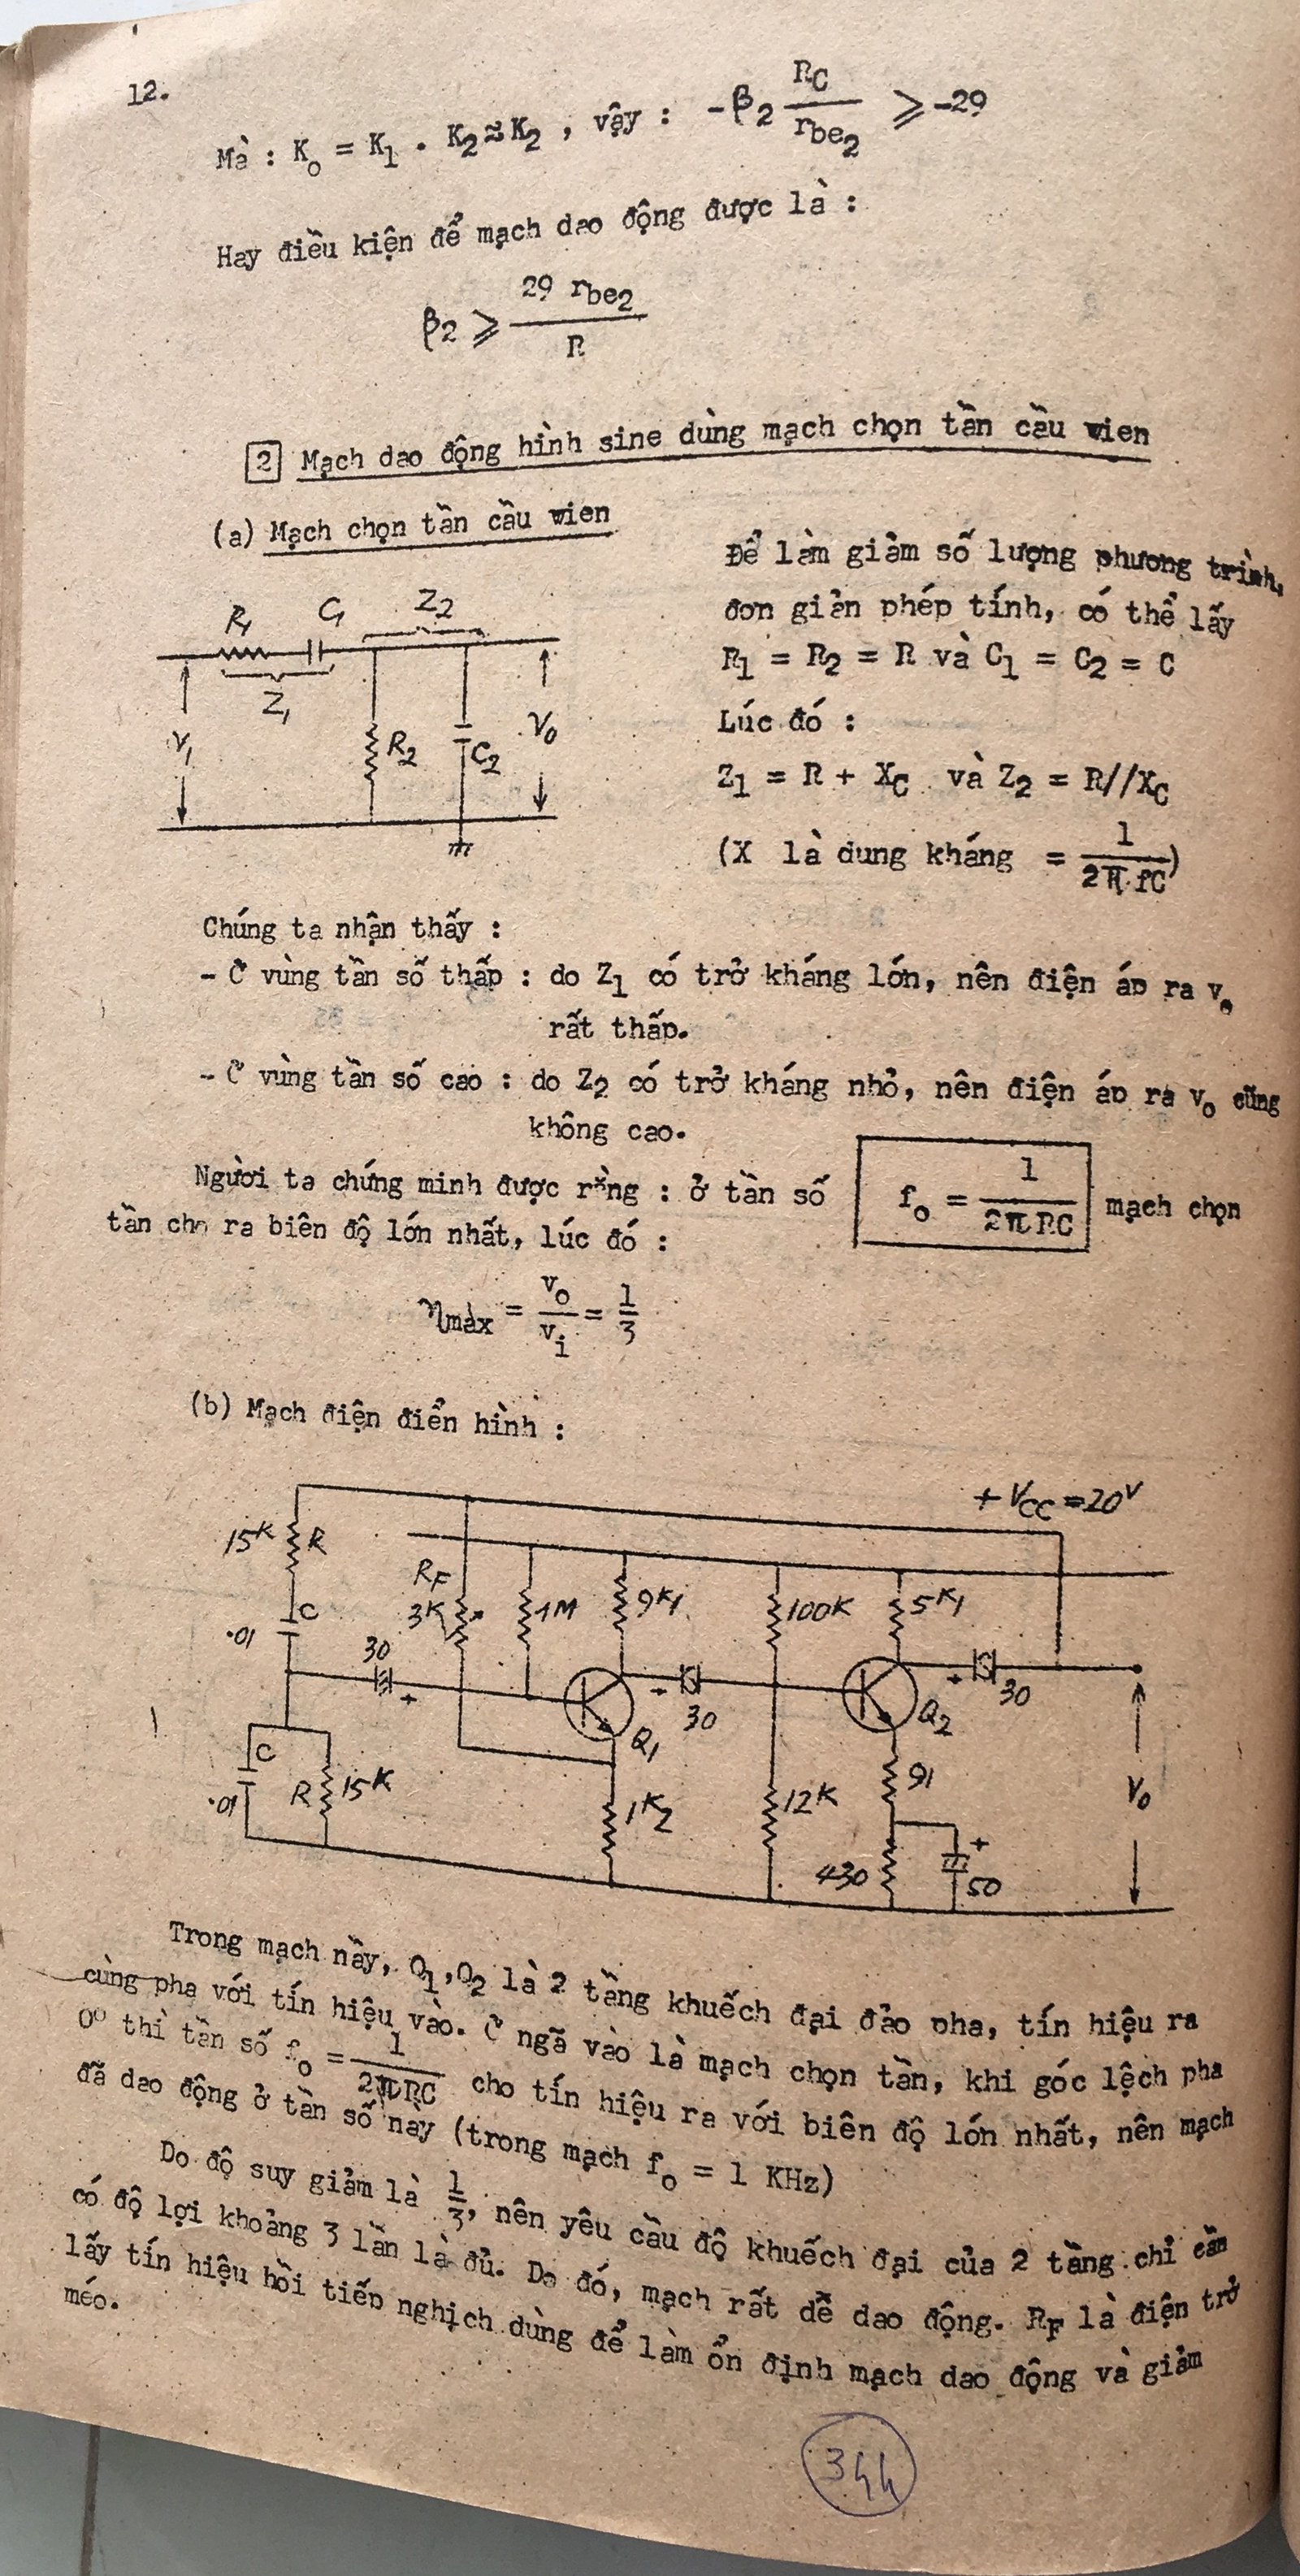 12.
Mà : K₀ = K₁ . K₂ ≈ K₂ , vậy : -β₂ R_C / r_be₂ ⩾ -29
Hay điều kiện để mạch dao động được là :
β₂ ⩾ 29 r_be₂ / R
2 Mạch dao động hình sine dùng mạch chọn tần cầu wien
(a) Mạch chọn tần cầu wien
R₁ C₁ Z₂
Z₁
V₁ R₂ C₂ V₀
Để làm giảm số lượng phương trình,
đơn giản phép tính, có thể lấy
R₁ = R₂ = R và C₁ = C₂ = C
Lúc đó :
Z₁ = R + X_C và Z₂ = R//X_C
(X là dung kháng = 1 / 2π fC)
Chúng ta nhận thấy :
- Ở vùng tần số thấp : do Z₁ có trở kháng lớn, nên điện áp ra v₀
rất thấp.
- Ở vùng tần số cao : do Z₂ có trở kháng nhỏ, nên điện áp ra v₀ cũng
không cao.
Người ta chứng minh được rằng : ở tần số f₀ = 1 / 2πRC mạch chọn
tần cho ra biên độ lớn nhất, lúc đó :
η_max = v₀ / v_i = 1/3
(b) Mạch điện điển hình :
+ V_CC = 20V
15K R
R_F
3K 1M 9K1 100K 5K1
C
.01
30 +
+ 30
+ 30
Q₁ Q₂
C
.01
R 15K
1K2 12K 91
430 + 50
V₀
Trong mạch nầy, Q₁,Q₂ là 2 tầng khuếch đại đảo pha, tín hiệu ra
cùng pha với tín hiệu vào. Ở ngã vào là mạch chọn tần, khi góc lệch pha
0⁰ thì tần số f₀ = 1 / 2πRC cho tín hiệu ra với biên độ lớn nhất, nên mạch
đã dao động ở tần số này (trong mạch f₀ = 1 KHz)
Do độ suy giảm là 1/3, nên yêu cầu độ khuếch đại của 2 tầng chỉ cần
có độ lợi khoảng 3 lần là đủ. Do đó, mạch rất dễ dao động. R_F là điện trở
lấy tín hiệu hồi tiếp nghịch dùng để làm ổn định mạch dao động và giảm
méo.
344